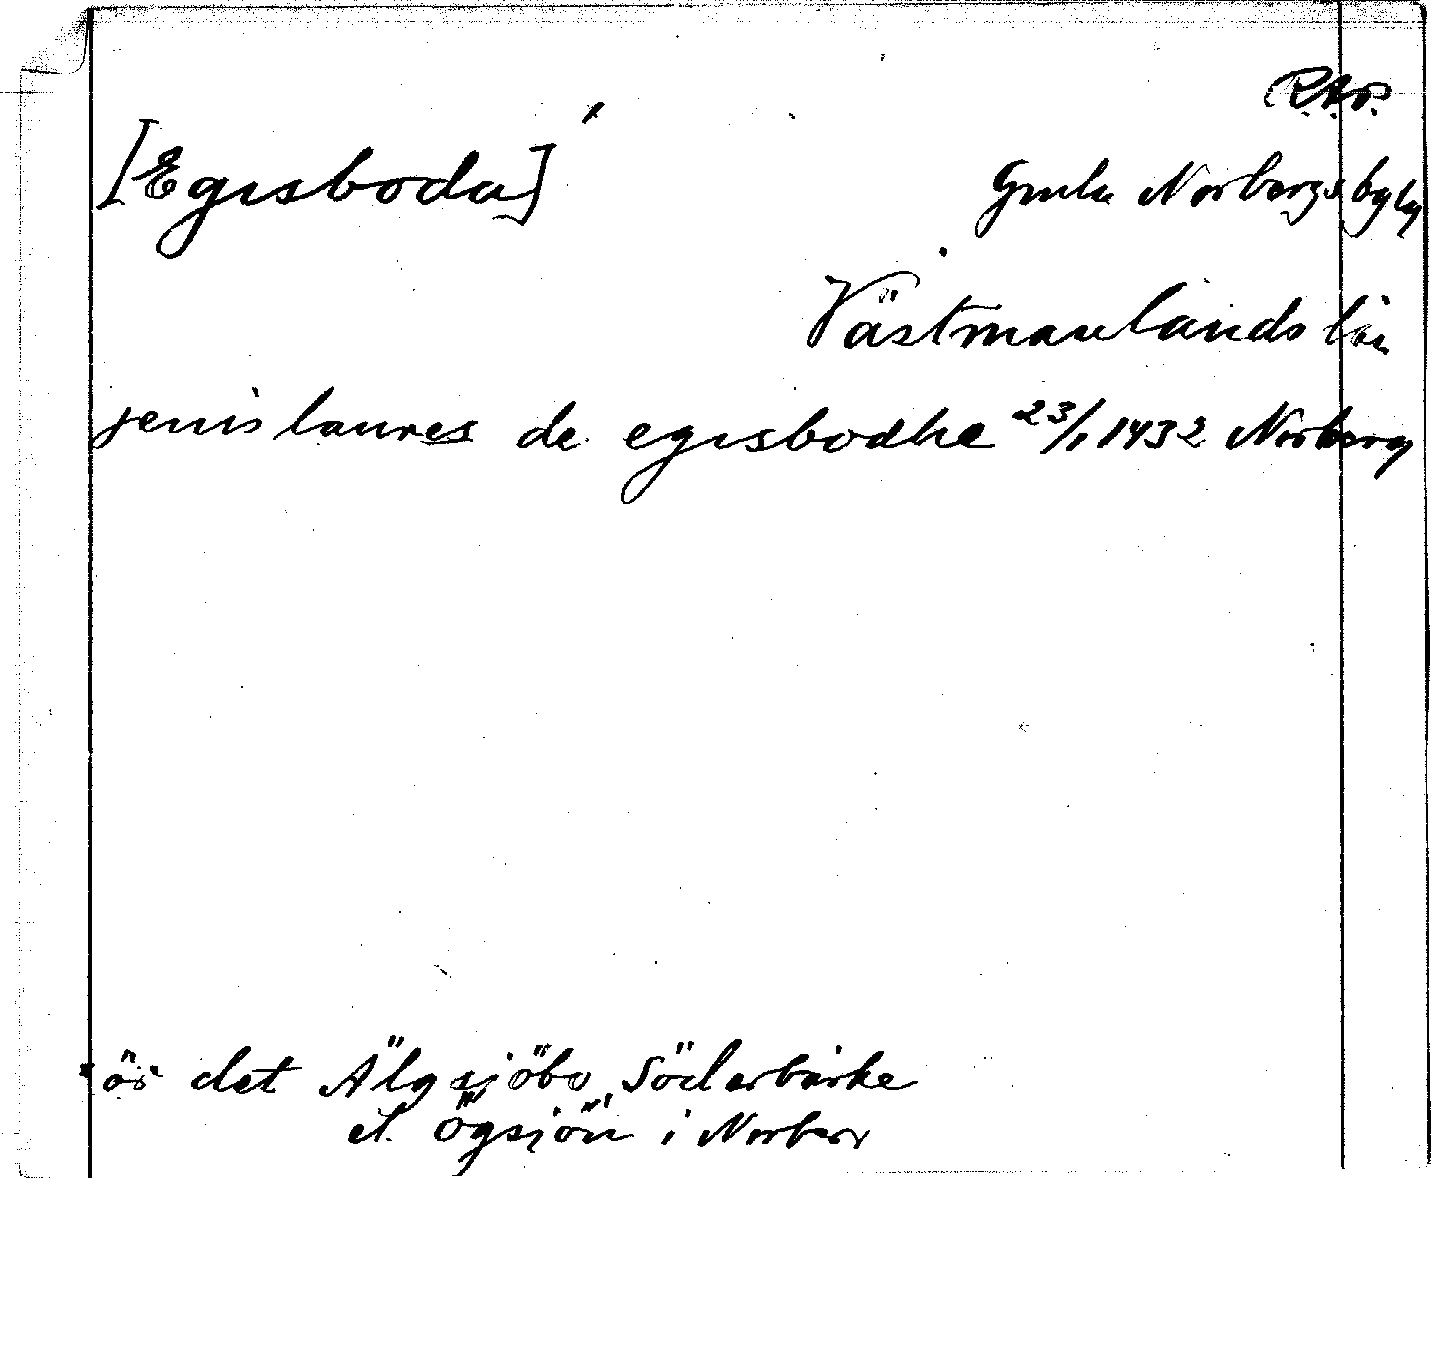 R.A.P.
[Egisboda]
Gmla Norbergs bglg
Västmanlands län
jenis laures de egisbodhe 23/1 1432 Norberg
är det Älgsjöbo, Söderbärke
el. Ögsjön i Norberg